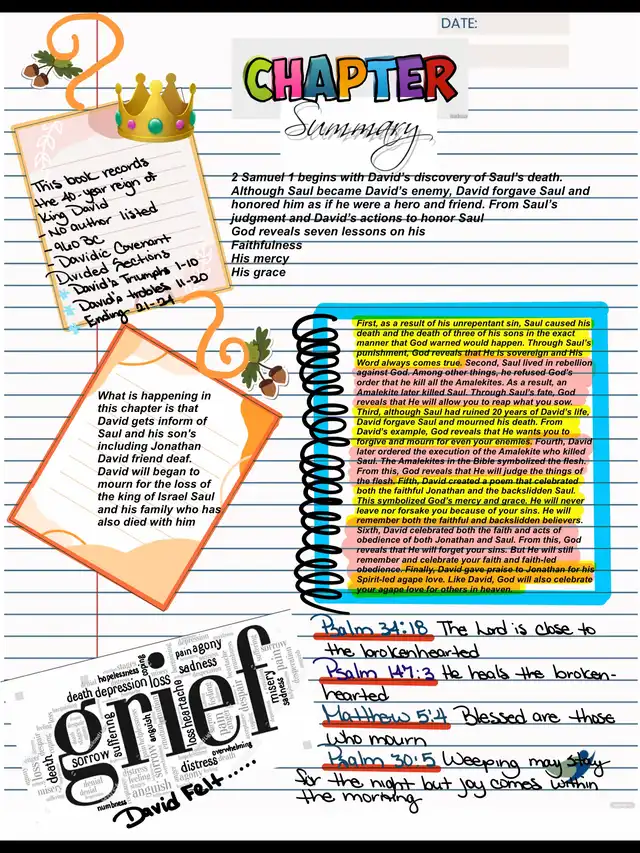 DATE:
CHAPTER
Summary
This book records
the 40-year reign of
King David
- No author listed
- 960 BC
- Davidic Covenant
Divided Sections
David's Triumphs 1-10
David's trobles 11-20
Ending 21-24
2 Samuel 1 begins with David's discovery of Saul's death.
Although Saul became David's enemy, David forgave Saul and
honored him as if he were a hero and friend. From Saul's
judgment and David's actions to honor Saul
God reveals seven lessons on his
Faithfulness
His mercy
His grace
First, as a result of his unrepentant sin, Saul caused his
death and the death of three of his sons in the exact
manner that God warned would happen. Through Saul's
punishment, God reveals that He is sovereign and His
Word always comes true. Second, Saul lived in rebellion
against God. Among other things, he refused God's
order that he kill all the Amalekites. As a result, an
Amalekite later killed Saul. Through Saul's fate, God
reveals that He will allow you to reap what you sow.
Third, although Saul had ruined 20 years of David's life,
David forgave Saul and mourned his death. From
David's example, God reveals that He wants you to
forgive and mourn for even your enemies. Fourth, David
later ordered the execution of the Amalekite who killed
Saul. The Amalekites in the Bible symbolized the flesh.
From this, God reveals that He will judge the things of
the flesh. Fifth, David created a poem that celebrated
both the faithful Jonathan and the backslidden Saul.
This symbolized God's mercy and grace. He will never
leave nor forsake you because of your sins. He will
remember both the faithful and backslidden believers.
Sixth, David celebrated both the faith and acts of
obedience of both Jonathan and Saul. From this, God
reveals that He will forget your sins. But He will still
remember and celebrate your faith and faith-led
obedience. Finally, David gave praise to Jonathan for his
Spirit-led agape love. Like David, God will also celebrate
your agape love for others in heaven.
What is happening in
this chapter is that
David gets inform of
Saul and his son's
including Jonathan
David friend deaf.
David will began to
mourn for the loss of
the king of Israel Saul
and his family who has
also died with him
pain agony
sorrow
hopelessness
coping
sadness
death depression loss
misery
sadness pain
grief
suffering
anguish
loss heartache
death
sorrow
overwhelming
distress
anguish
numbness
David Felt.....
Psalm 34:18 The Lord is close to
the brokenhearted
Psalm 147:3 He heals the broken-
hearted
Matthew 5:4 Blessed are those
who mourn
Psalm 30:5 Weeping may stay
for the night but joy comes within
the morning